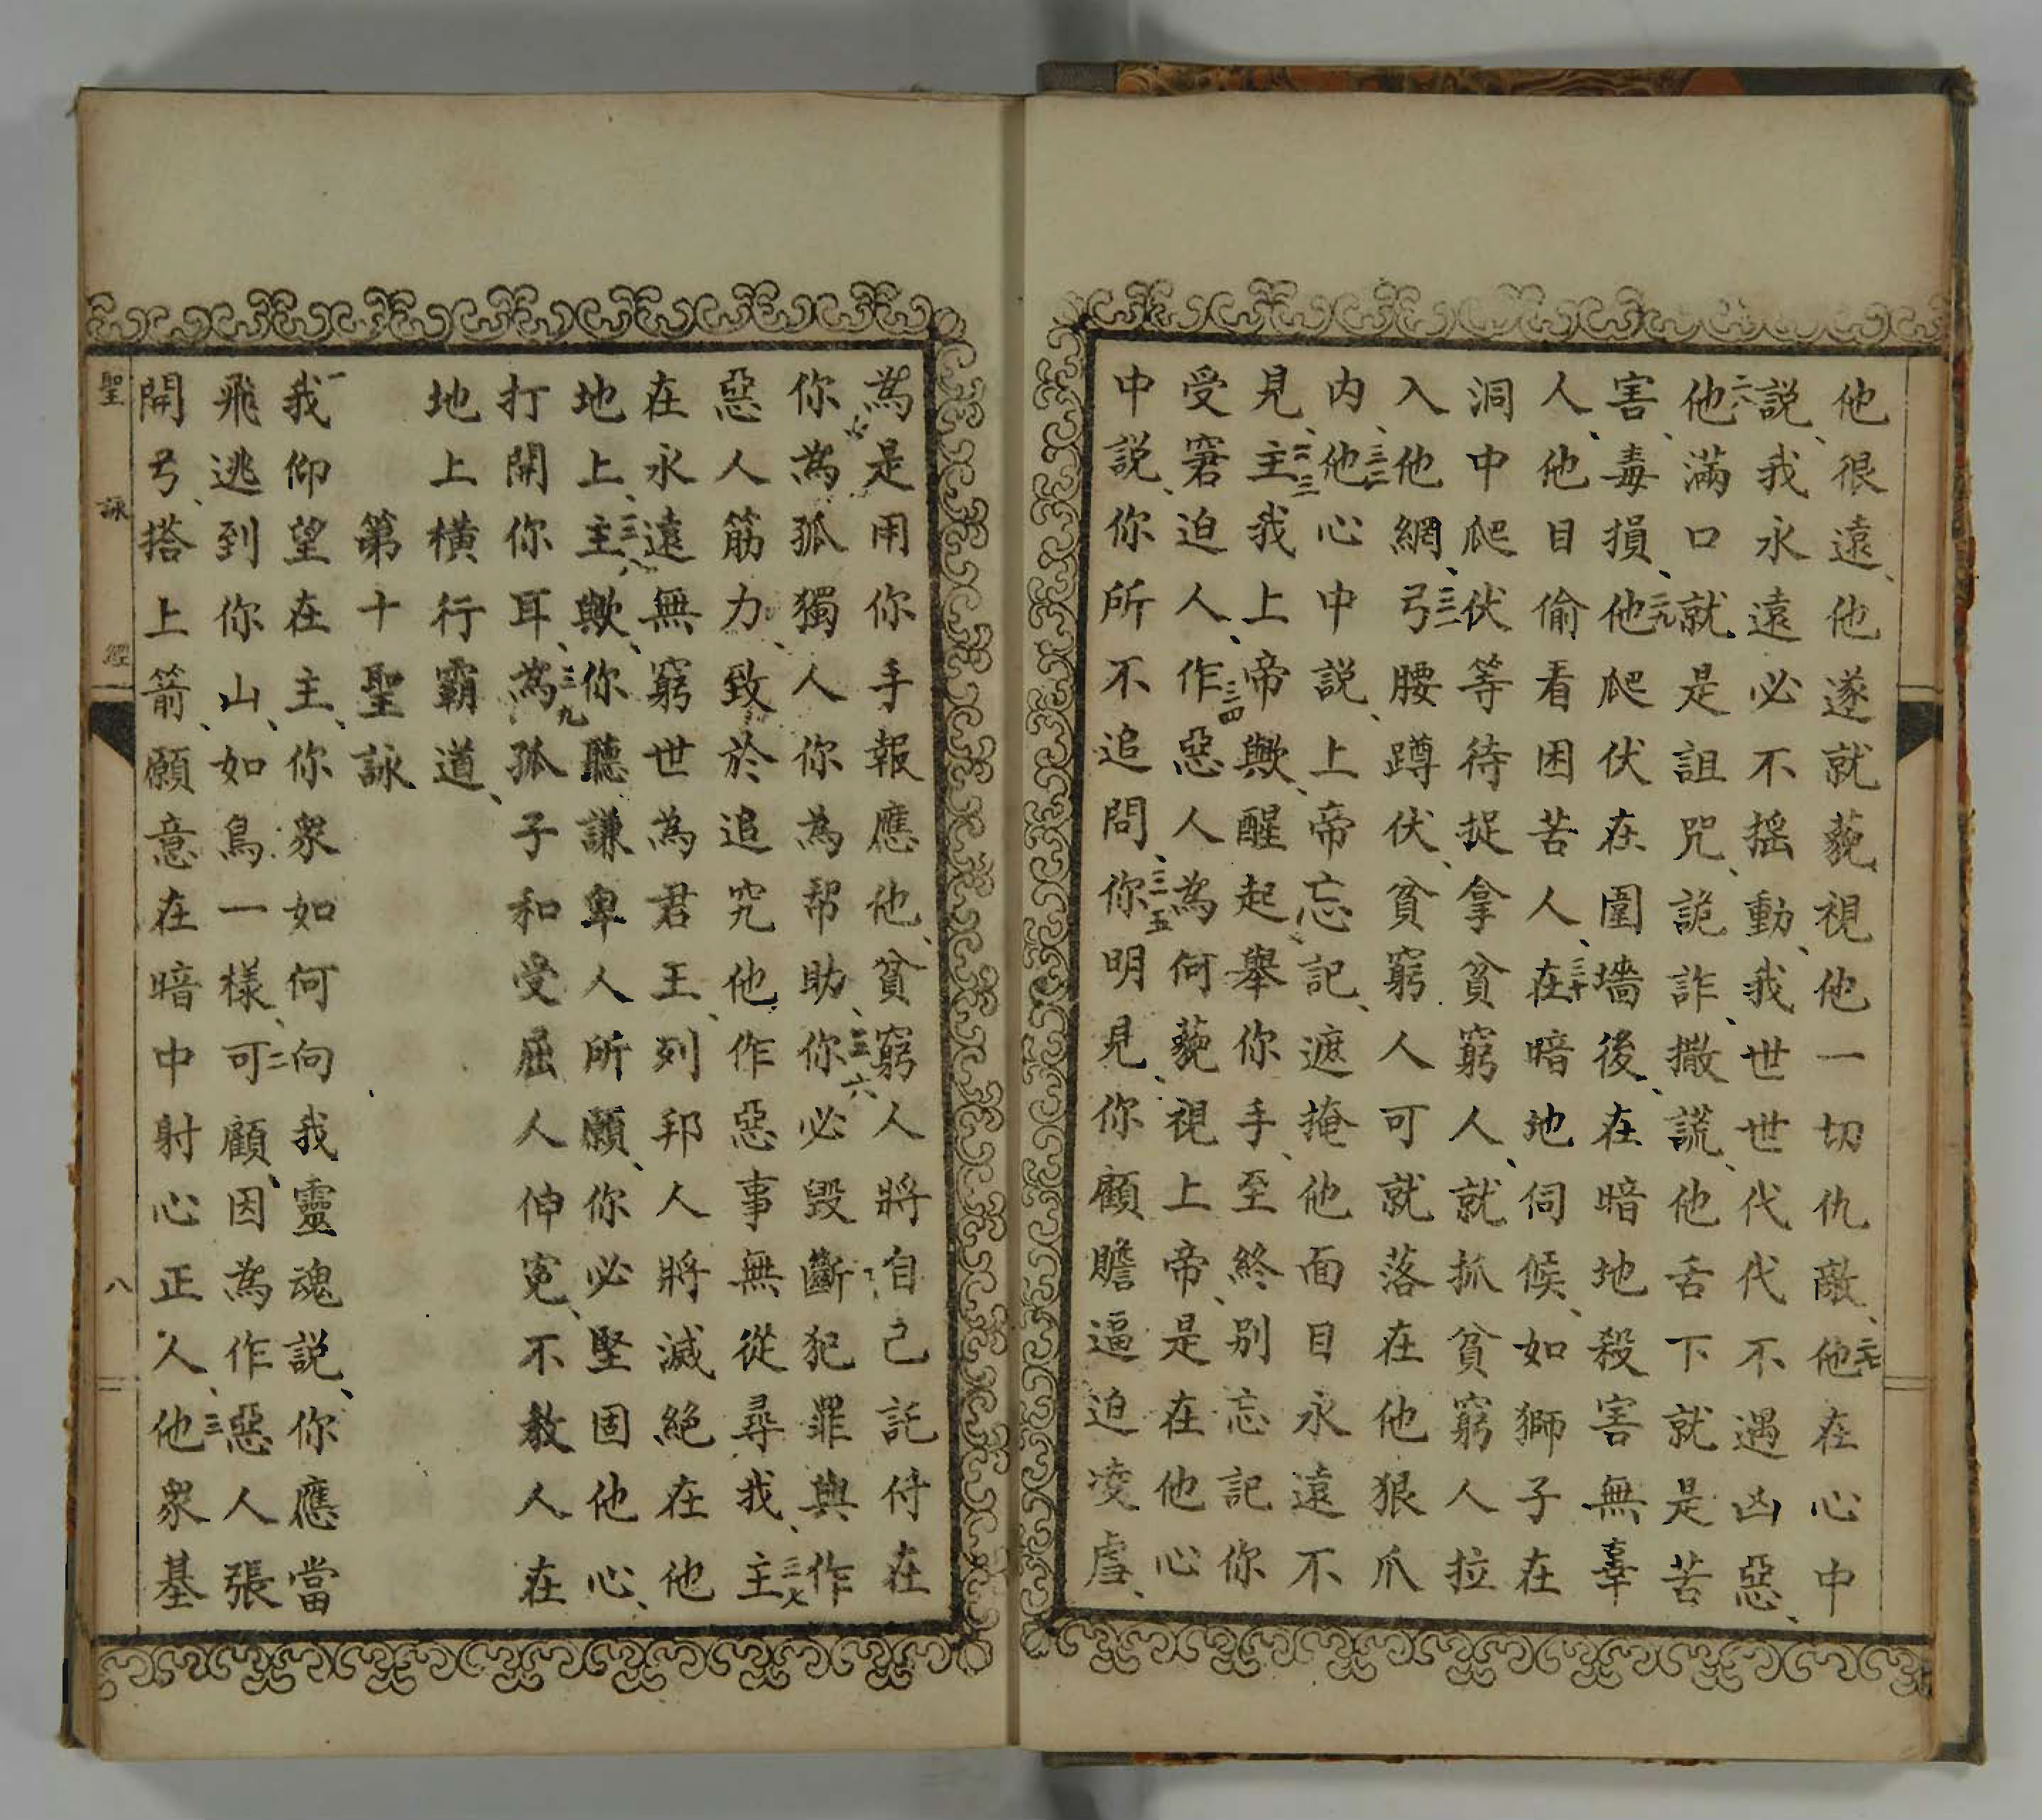 他很遠、他遂就藐視他一切仇敵、二七他在心中
説、我永遠必不搖動、我世世代代不遇凶惡、
二八他滿口就是詛咒、詭詐、撒謊、他舌下就是苦
害、毒損、二九他爬伏在圍墻後、在暗地殺害無辜
人、他目偷看困苦人、三十在暗地伺候、如獅子在
洞中爬伏等待捉拿貧窮人、就抓貧窮人拉
入他網、三一弓腰蹲伏、貧窮人可就落在他狠爪
内、三二他心中説、上帝忘記、遮掩他面目永遠不
見、三三主我上帝歟、醒起舉你手、至終别忘記你
受窘迫人、三四作惡人為何藐視上帝、是在他心
中説、你所不追問、三五你明見、你顧瞻逼迫凌虐、
為是用你手報應他、貧窮人將自己託付在
你、你為孤獨人你為帮助、三六你必毁斷犯罪與作
惡人筋力、致於追究他作惡事無從尋我、三七主
在永遠無窮世為君王、列邦人將滅絶在他
地上、三八主歟、你聽謙卑人所願、你必堅固他心、
打開你耳、三九為孤子和受屈人伸寃、不教人在
地上橫行霸道、
第十聖詠
一我仰望在主、你衆如何向我靈魂説、你應當
飛逃到你山、如鳥一樣、二可顧、因為作惡人張
開弓、搭上箭、願意在暗中射心正人、三他衆基
聖詠經
八